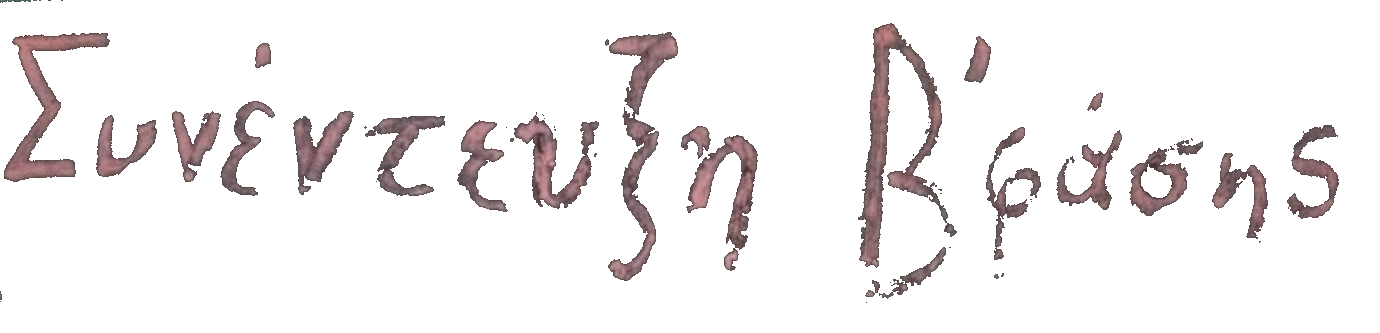 Συνέντευξη Β' φάσης